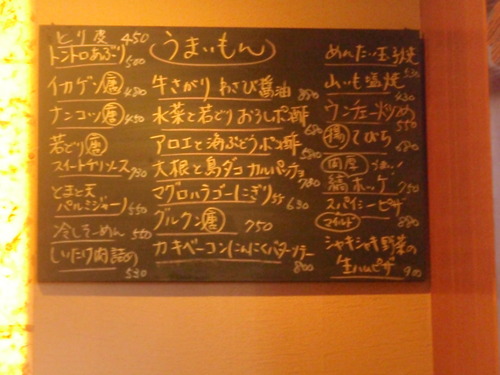 とり皮 450
トントロあぶり 500
イカゲソ唐 480
ナンコツ唐 450
若どり唐
スイートチリソース 730
とまと天
パルミジャーノ 450
冷しそーめん 500
しいたけ肉詰め
530
うまいもん
牛さがり わさび醤油 850
水菜と若どりおろしポン酢 680
アロエと海ぶどうポン酢 680
大根と島ダコカルパッチョ 780
マグロハラゴーにぎり 630
グルクン唐 750
カキベーコンにんにくバターソテー
800
めんたい玉子焼 530
山いも塩焼 430
ウンチェー炒め 550
揚てびち 680
肉厚うまい!
縞ホッケ 750
スパイシーピザ
880
シャキシャキ野菜の
生ハムピザ 900